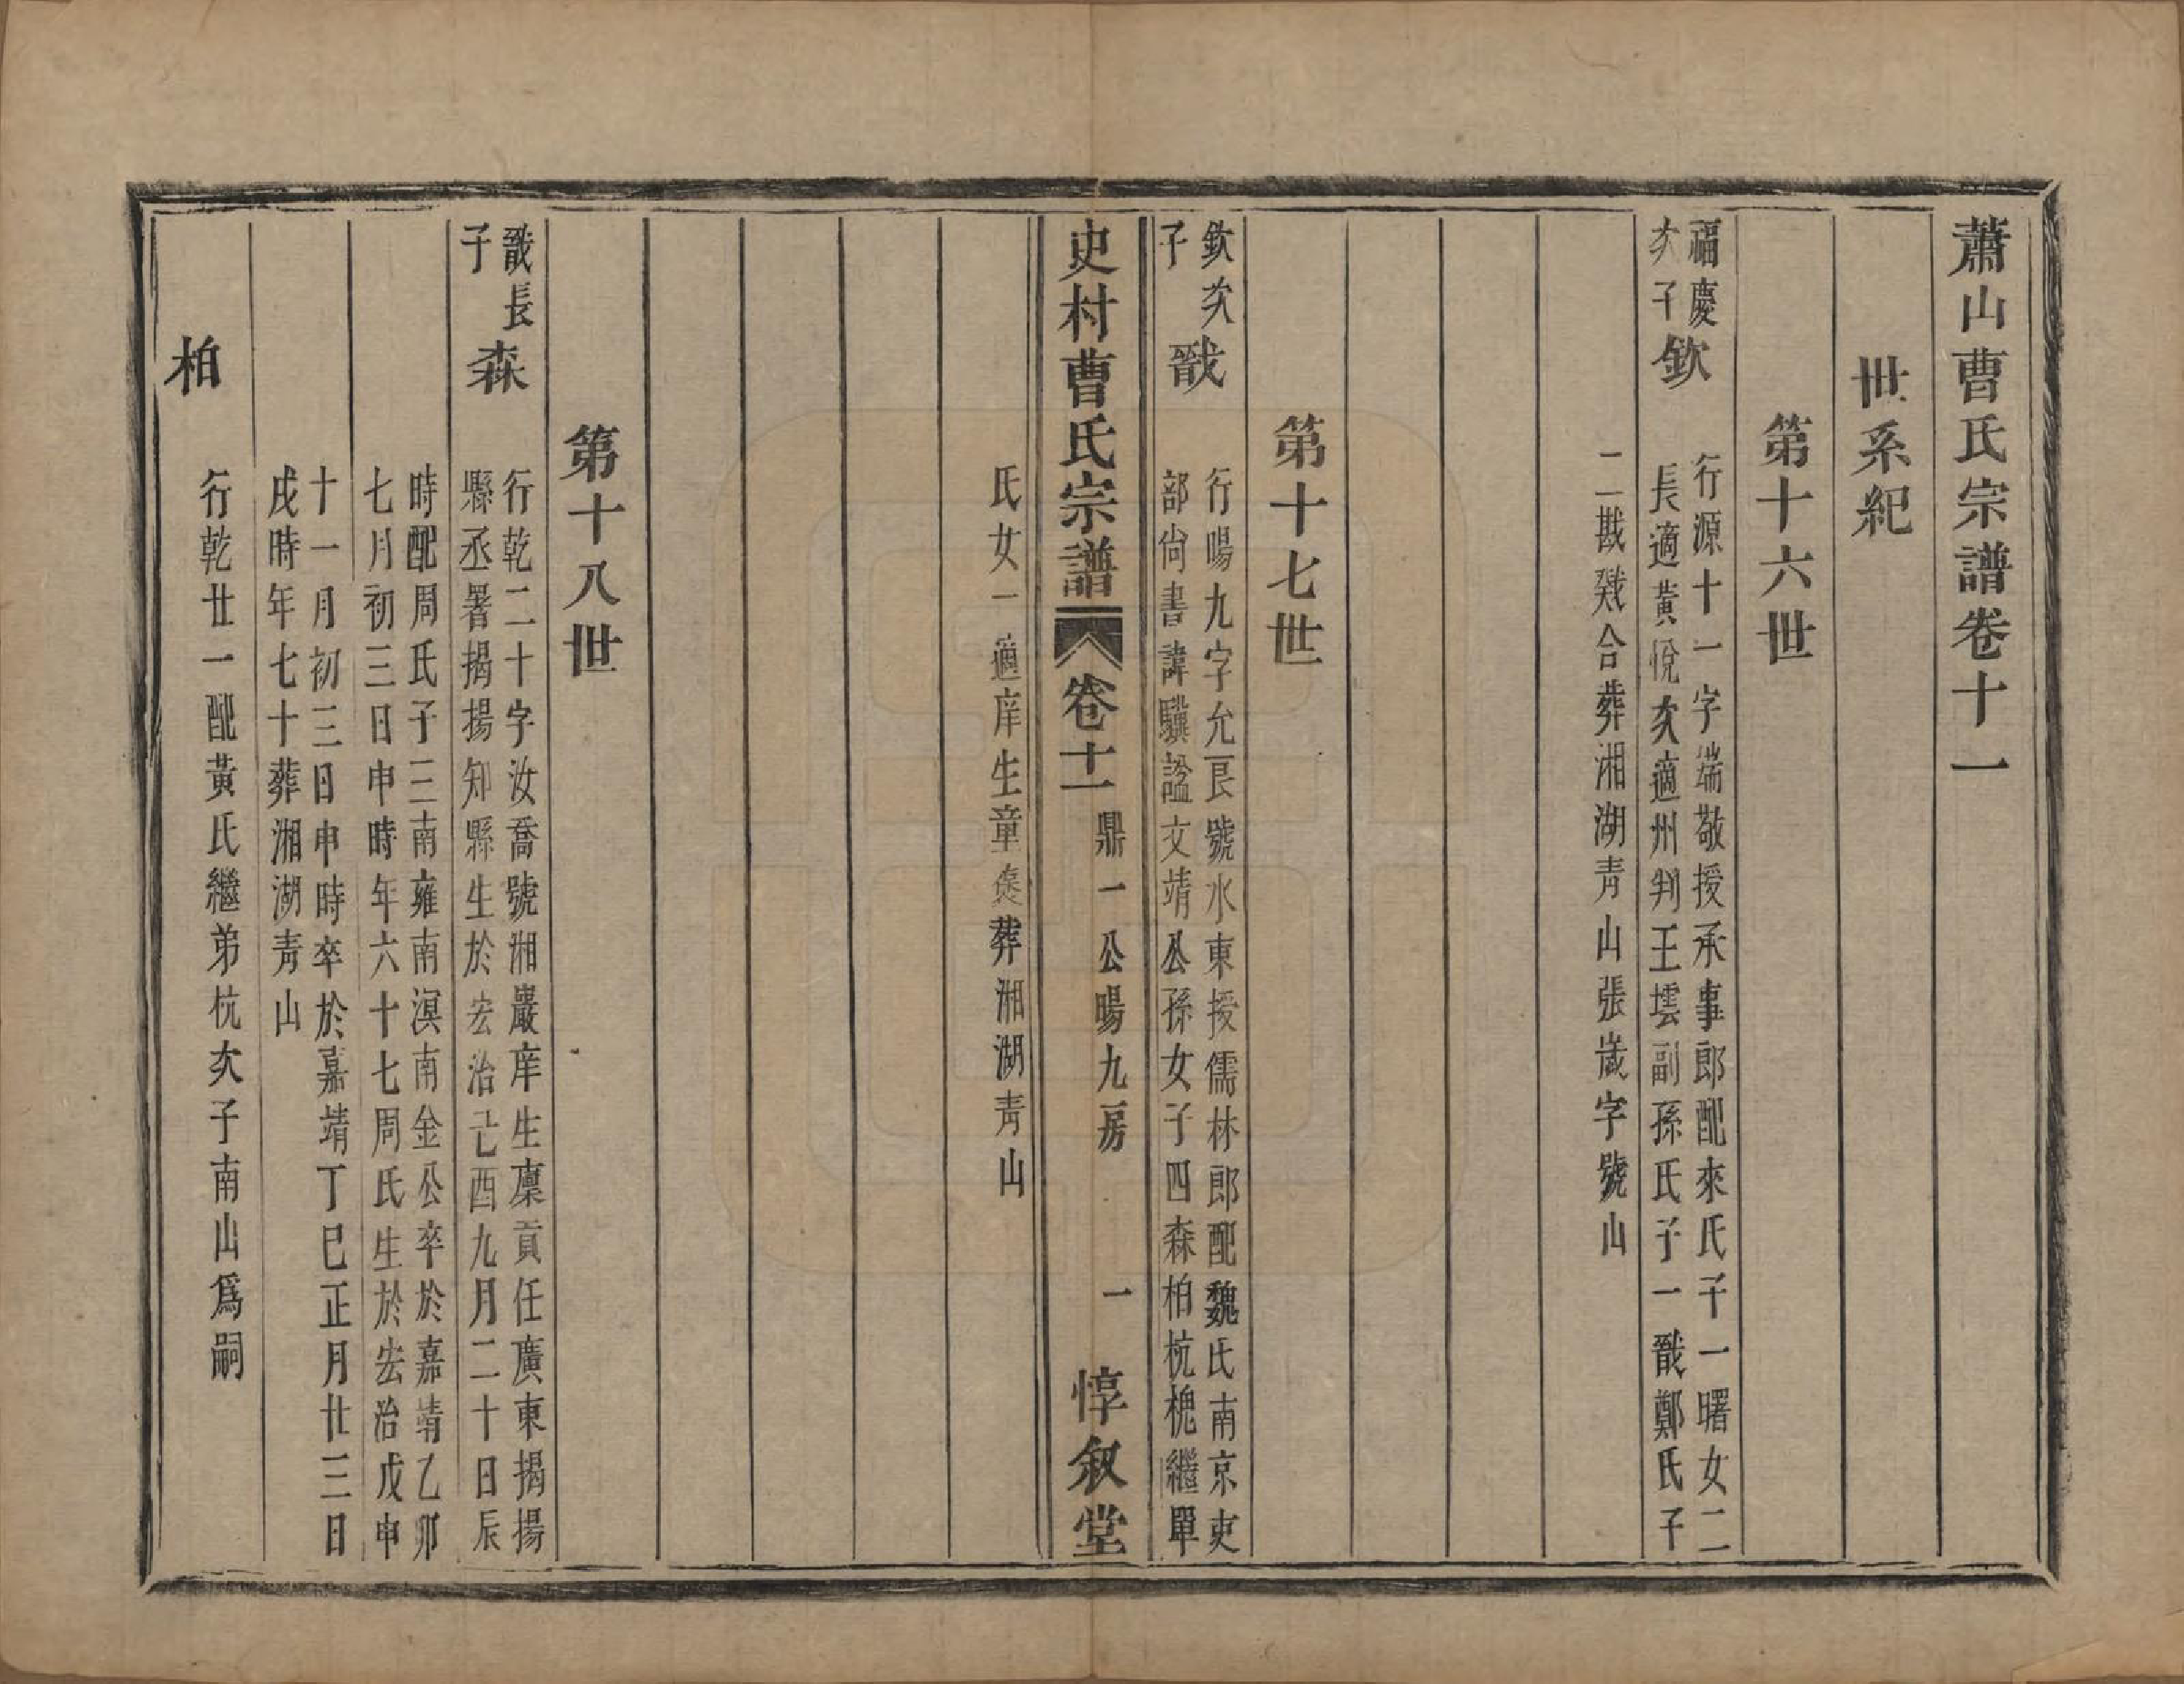 蕭山曹氏宗譜卷十一
世系紀
第十六世
福慶
次子
欽
行源十一字端敬授承事郎配來氏子一曙女二
長適黃悅次適州判王墰副孫氏子一戩鄭氏子
二戡戣合葬湘湖青山張嵗字號山
第十七世
欽次
子
戩
行暘九字允良號水東授儒林郎配魏氏南京吏
部尙書諱驥諡文靖公孫女子四森柏杭槐繼單
史村曹氏宗譜
卷十一
鼎一公暘九房
一
惇叙堂
氏女一適庠生童葬湘湖青山
第十八世
戩長
子
森
行乾二十字汝喬號湘巖庠生廪貢任廣東揭揚
縣丞署揭揚知縣生於宏治己酉九月二十日辰
時配周氏子三南雍南溟南金公卒於嘉靖乙卯
七月初三日申時年六十七周氏生於宏治戊申
十一月初三日申時卒於嘉靖丁巳正月廿三日
戌時年七十葬湘湖青山
柏
行乾廿一配黃氏繼弟杭次子南山爲嗣